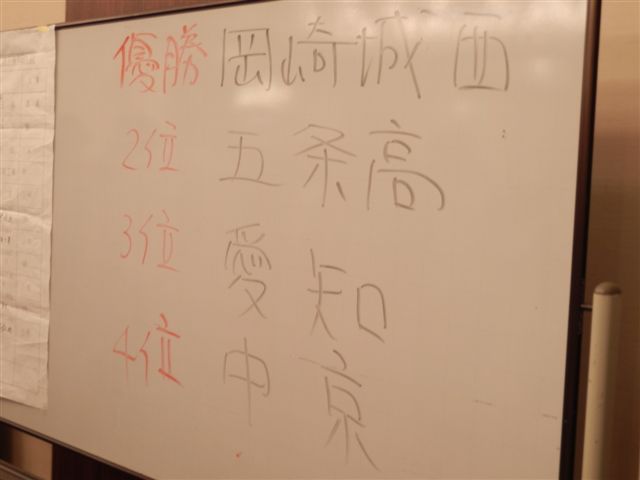 優勝 岡崎城西
2位 五条高
3位 愛知
4位 中京